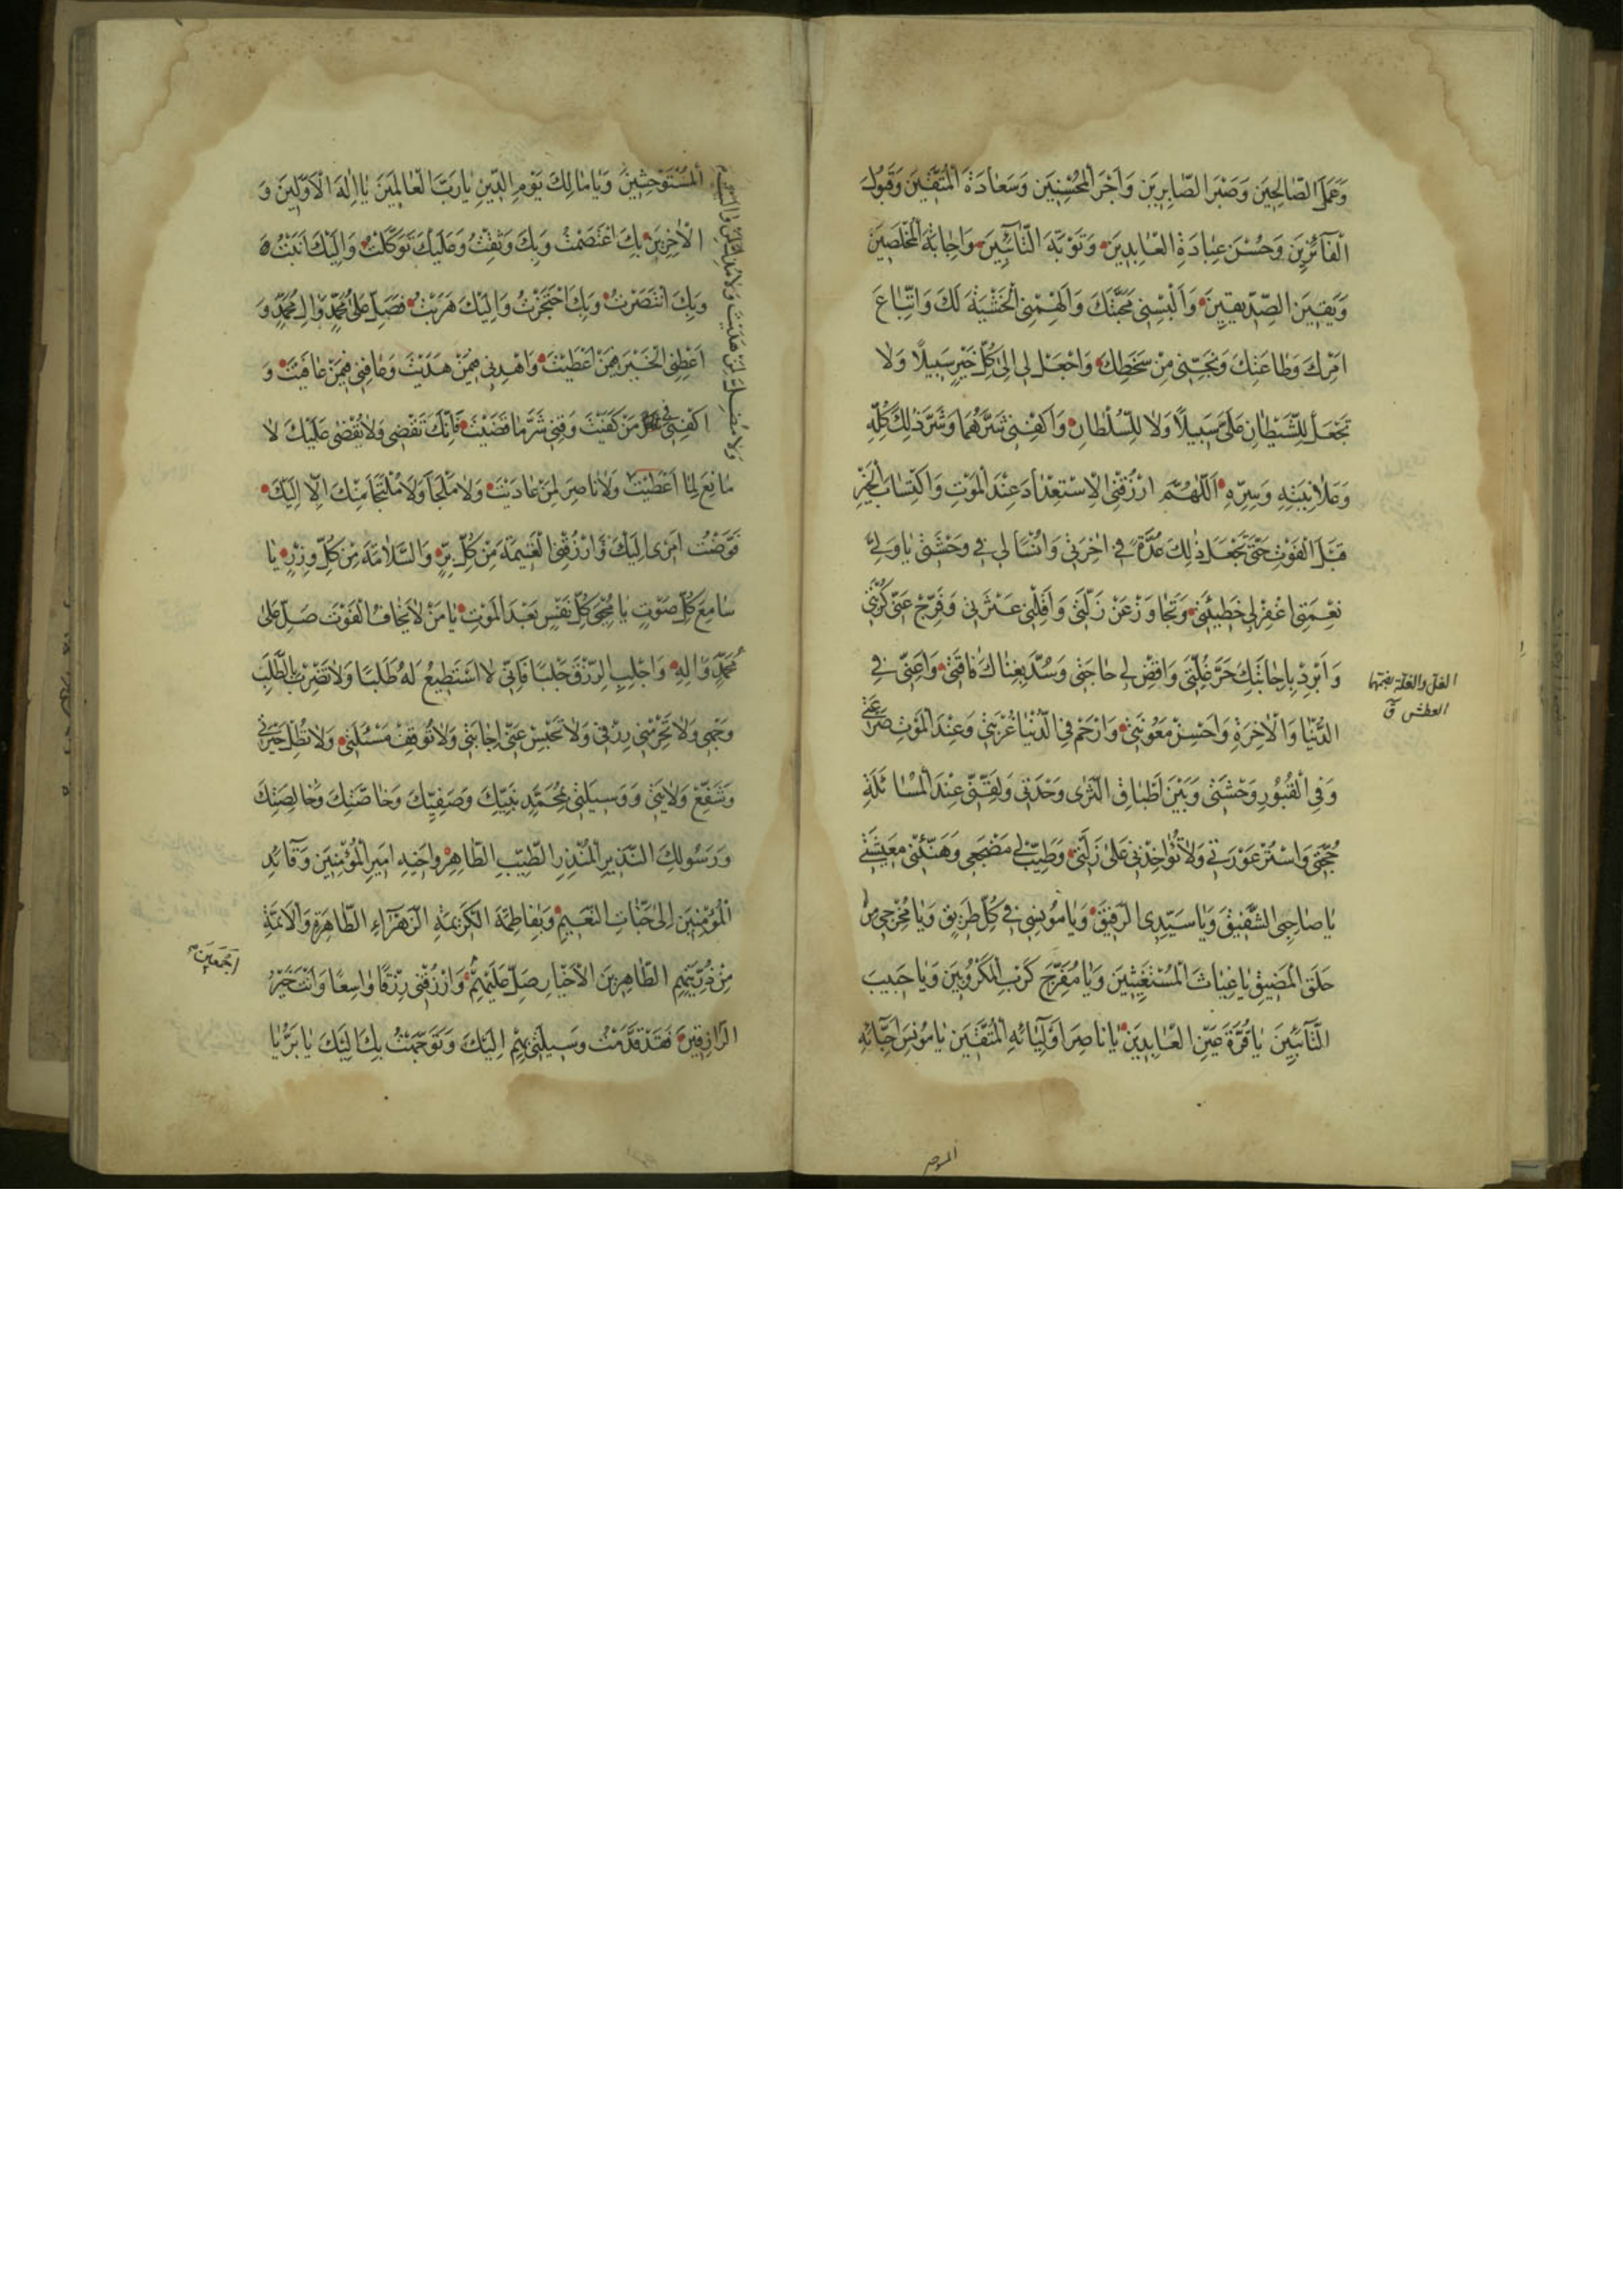 وَعَمَلَ الصّٰالِحِينَ وَصَبْرَ الصّٰابِرِينَ وَاَجْرَ الْمُحْسِنِينَ وَسَعٰادَةَ الْمُتَّقِينَ وَقَبُولَ
الْفٰائِزِينَ وَحُسْنَ عِبٰادَةِ الْعٰابِدِينَ وَتَوْبَةَ التّٰائِبِينَ وَاِجٰابَةَ الْمُخْلَصِينَ
وَيَقِينَ الصِّدّيقِينَ وَاَلْبِسْنِى مَحَبَّتَكَ وَاَلْهِمْنِى الْخَشْيَةَ لَكَ وَاتِّبٰاعَ
اَمْرِكَ وَطٰاعَتِكَ وَنَجِّنِى مِنْ سَخَطِكَ وَاجْعَلْ لِى اِلىٰ كُلِّ خَيْرٍ سَبِيلًا وَلٰا
تَجْعَلْ لِلشَّيْطٰانِ عَلَىَّ سَبِيلًا وَلٰا لِلسُّلْطٰانِ وَاكْفِنِى شَرَّهُمٰا وَشَرَّ ذٰلِكَ كُلِّهِ
وَعَلٰانِيَتِهِ وَسِرِّهِ اَللّٰهُمَّ ارْزُقْنِى الْاِسْتِعْدٰادَ عِنْدَ الْمَوْتِ وَاكْتِسٰابَ الْخَيْرِ
قَبْلَ الْفَوْتِ حَتّٰى تَجْعَلَ ذٰلِكَ عُدَّةً فِى اٰخِرَتِى وَاُنْسًا لِى فِى وَحْشَتِى يٰا وَلِىَّ
نِعْمَتِى اغْفِرْ لِى خَطِيئَتِى وَتَجٰاوَزْ عَنْ زَلَّتِى وَاَقِلْنِى عَثْرَتِى وَفَرِّجْ عَنِّى كُرْبَتِى
وَاَبْرِدْ بِاِجٰابَتِكَ حَرَّ غُلَّتِى وَاقْضِ لِى حٰاجَتِى وَسُدَّ بِغِنٰاكَ فٰاقَتِى وَاَعِنِّى فِى
الغل والغلة بضمهما
العطش ق
الدُّنْيٰا وَالْاٰخِرَةِ وَاَحْسِنْ مَعُونَتِى وَارْحَمْ فِى الدُّنْيٰا غُرْبَتِى وَعِنْدَ الْمَوْتِ صَرْعَتِى
وَفِى الْقُبُورِ وَحْشَتِى وَبَيْنَ اَطْبٰاقِ الثَّرىٰ وَحْدَتِى وَلَقِّنِّى عِنْدَ الْمُسٰائَلَةِ
حُجَّتِى وَاسْتُرْ عَوْرَتِى وَلٰا تُؤٰاخِذْنِى عَلىٰ زَلَّتِى وَطَيِّبْ لِى مَضْجَعِى وَهَنِّئْنِى مَعِيشَتِى
يٰا صٰاحِبِى الشَّفِيقَ وَيٰا سَيِّدِى الرَّفِيقَ وَيٰا مُونِسِى فِى كُلِّ طَرِيقٍ وَيٰا مُخْرِجِى مِنْ
حَلَقِ الْمَضِيقِ يٰا غِيٰاثَ الْمُسْتَغِيثِينَ وَيٰا مُفَرِّجَ كَرْبِ الْمَكْرُوبِينَ وَيٰا حَبِيبَ
التّٰائِبِينَ يٰا قُرَّةَ عَيْنِ الْعٰابِدِينَ يٰا نٰاصِرَ اَوْلِيٰائِهِ الْمُتَّقِينَ يٰا مُونِسَ اَحِبّٰائِهِ
الْمُسْتَوْحِشِينَ وَيٰا مٰالِكَ يَوْمِ الدِّينِ يٰا رَبَّ الْعٰالَمِينَ يٰا اِلٰهَ الْاَوَّلِينَ وَ
الْاٰخِرِينَ بِكَ اعْتَصَمْتُ وَبِكَ وَثِقْتُ وَعَلَيْكَ تَوَكَّلْتُ وَاِلَيْكَ اَنَبْتُ
وَبِكَ انْتَصَرْتُ وَبِكَ احْتَجَزْتُ وَاِلَيْكَ هَرَبْتُ فَصَلِّ عَلىٰ مُحَمَّدٍ وَاٰلِ مُحَمَّدٍ وَ
اَعْطِنِى الْخَيْرَ فِيمَنْ اَعْطَيْتَ وَاهْدِنِى فِيمَنْ هَدَيْتَ وَعٰافِنِى فِيمَنْ عٰافَيْتَ وَ
اكْفِنِى فِى مَنْ كَفَيْتَ وَقِنِى شَرَّ مٰا قَضَيْتَ فَاِنَّكَ تَقْضِى وَلٰا يُقْضىٰ عَلَيْكَ لٰا
مٰانِعَ لِمٰا اَعْطَيْتَ وَلٰا نٰاصِرَ لِمَنْ عٰادَيْتَ وَلٰا مَلْجَأَ وَلٰا مُلْتَجَأَ مِنْكَ اِلّٰا اِلَيْكَ
فَوَّضْتُ اَمْرِى اِلَيْكَ وَارْزُقْنِى الْغَنِيمَةَ مِنْ كُلِّ بِرٍّ وَالسَّلٰامَةَ مِنْ كُلِّ وِزْرٍ يٰا
سٰامِعَ كُلِّ صَوْتٍ يٰا مُحْيِىَ كُلِّ نَفْسٍ بَعْدَ الْمَوْتِ يٰا مَنْ لٰا يَخٰافُ الْفَوْتَ صَلِّ عَلىٰ
مُحَمَّدٍ وَاٰلِهِ وَاجْلِبْ لِى الرِّزْقَ جَلْبًا فَاِنِّى لٰا اَسْتَطِيعُ لَهُ طَلَبًا وَلٰا تَضْرِبْ بِالطَّلَبِ
وَجْهِى وَلٰا تَحْرِمْنِى رِزْقِى وَلٰا تَحْبِسْ عَنِّى اِجٰابَتِى وَلٰا تُوقِفْ مَسْئَلَتِى وَلٰا تُطِلْ حَيْرَتِى
وَشَفِّعْ وَلٰايَتِى وَوَسِيلَتِى بِمُحَمَّدٍ نَبِيِّكَ وَصَفِيِّكَ وَخٰاصَّتِكَ وَخٰالِصَتِكَ
وَرَسُولِكَ النَّذِيرِ الْمُنْذِرِ الطَّيِّبِ الطّٰاهِرِ وَاَخِيهِ اَمِيرِ الْمُؤْمِنِينَ وَقٰائِدِ
الْمُؤْمِنِينَ اِلىٰ جَنّٰاتِ النَّعِيمِ وَبِفٰاطِمَةَ الْكَرِيمَةِ الزَّهْرٰاءِ الطّٰاهِرَةِ وَالْاَئِمَّةِ
مِنْ ذُرِّيَّتِهِمِ الطّٰاهِرِينَ الْاَخْيٰارِ صَلِّ عَلَيْهِمْ وَارْزُقْنِى رِزْقًا وٰاسِعًا وَاَنْتَ خَيْرُ
اَجْمَعِينَ
الرّٰازِقِينَ فَقَدْ قَدَّمْتُ وَسِيلَتِى بِهِمْ اِلَيْكَ وَتَوَجَّهْتُ بِكَ اِلَيْكَ يٰا بَرُّ يٰا